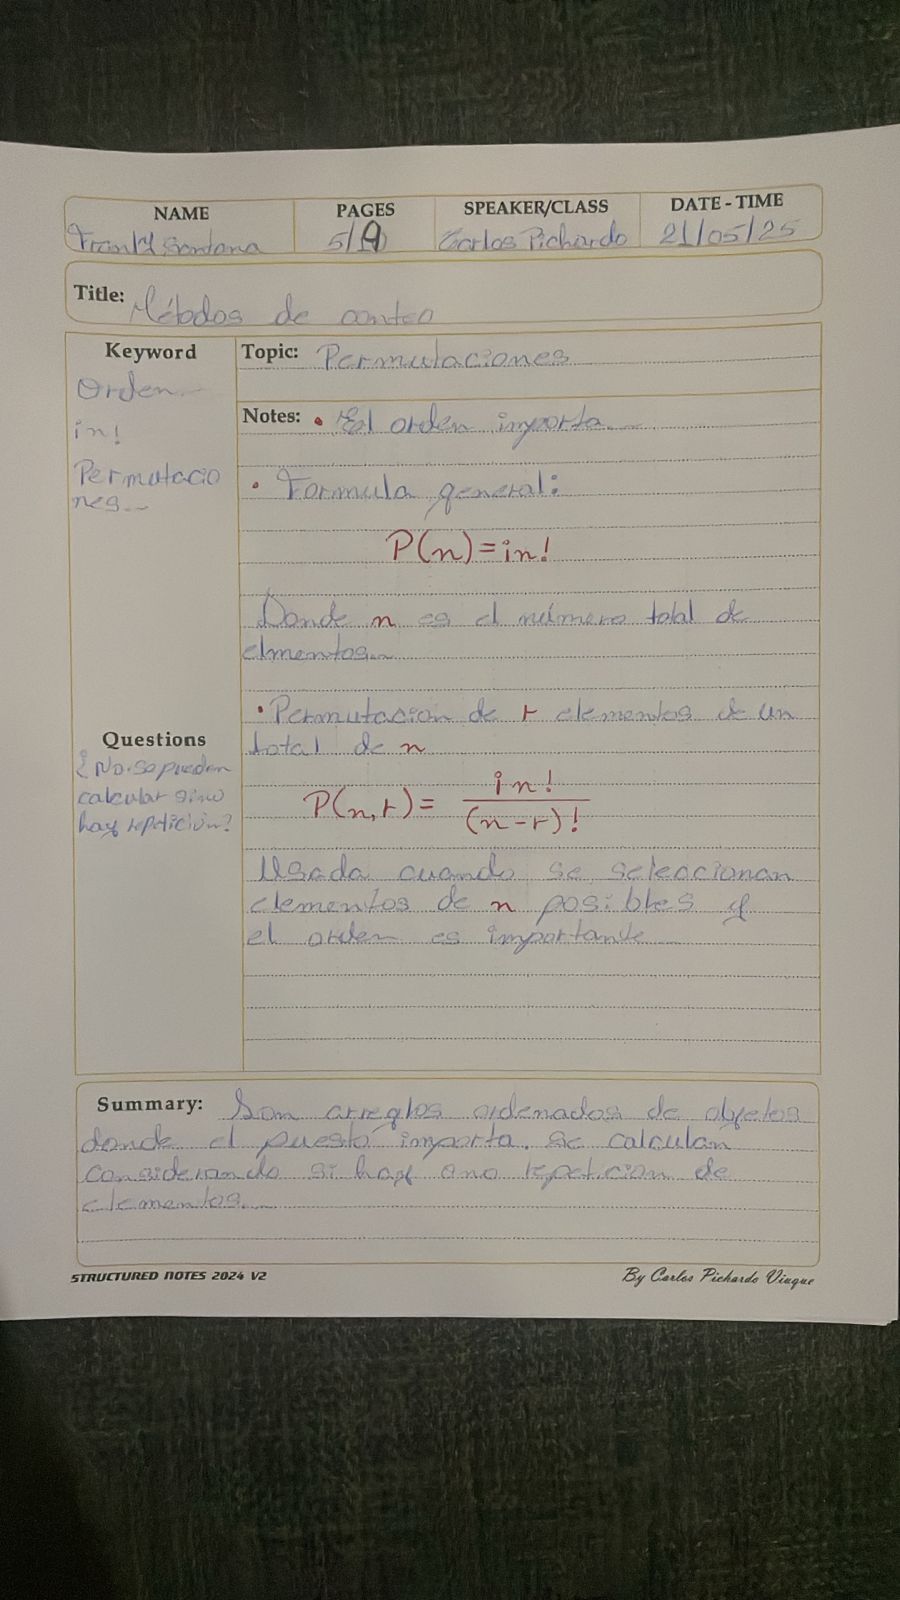 NAME PAGES SPEAKER/CLASS DATE - TIME
Santana 5/9 Carlos Pichardo 21/05/25
Title: Métodos de conteo
Keyword
Orden
in!
Permutacio
nes
Questions
¿No se pueden
calcular si no
hay repetición?
Topic: Permutaciones
Notes: • El orden importa
• Formula general:
P(n) = in!
Donde n es el número total de
elmentos
• Permutacion de r elementos de un
total de n
P(n,r) = in! / (n-r)!
Usada cuando se seleccionan
elementos de n posibles y
el orden es importante
Summary: Son arreglos ordenados de objetos
donde el puesto importa. Se calculan
considerando si hay o no repeticion de
elementos
STRUCTURED NOTES 2024 V2
By Carlos Pichardo Viuque